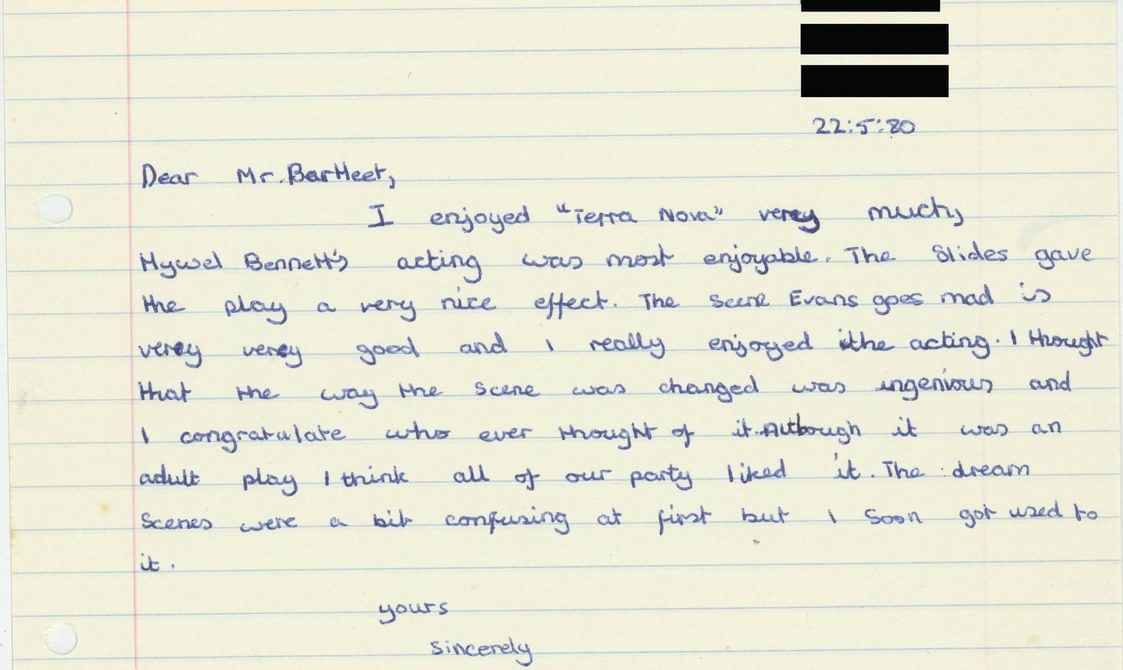 22:5:80
Dear Mr. Bartleet,
I enjoyed "Terra Nova" verey much,
Hywel Bennett's acting was most enjoyable. The Slides gave
the play a very nice effect. The scene Evans goes mad is
verey verey good and I really enjoyed the acting. I thought
that the way the scene was changed was ingenious and
I congratulate who ever thought of it. Although it was an
adult play I think all of our party liked it. The dream
Scenes were a bit confusing at first but I soon got used to
it.
yours
sincerely